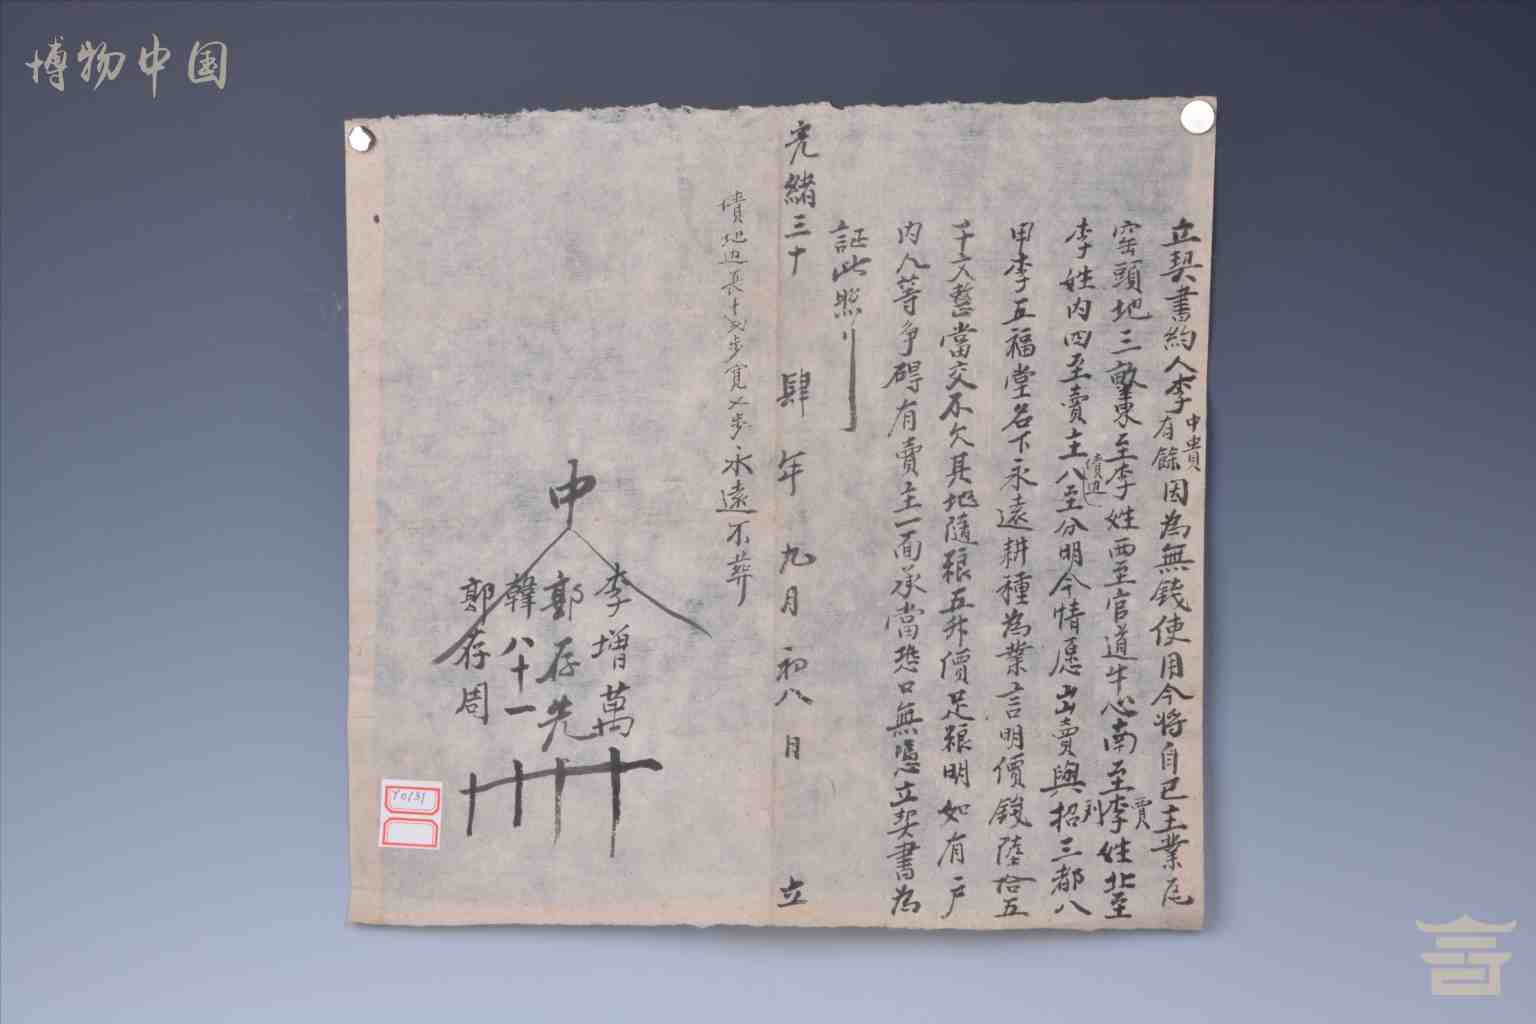 博物中国
立契書約人李中貴有餘因為無錢使用今將自己主業瓦
窑頭地三畝東至李姓西至官道牛心南至李姓北至賈
李姓内四至賣主墳边八至分明今情愿出賣與到招三都八
甲李五福堂名下永遠耕種為業言明價錢陸拾五
千文整當交不欠其地隨粮五升價足粮明如有户
内人等争碍有賣主一面承當恐口無憑立契書為
証此照
光緒三十肆年九月初八日立
墳地边長十弍步寬乂步永遠不葬
中
李增萬
郭存先
韓八十一
郭存周
十十十十
Y0131